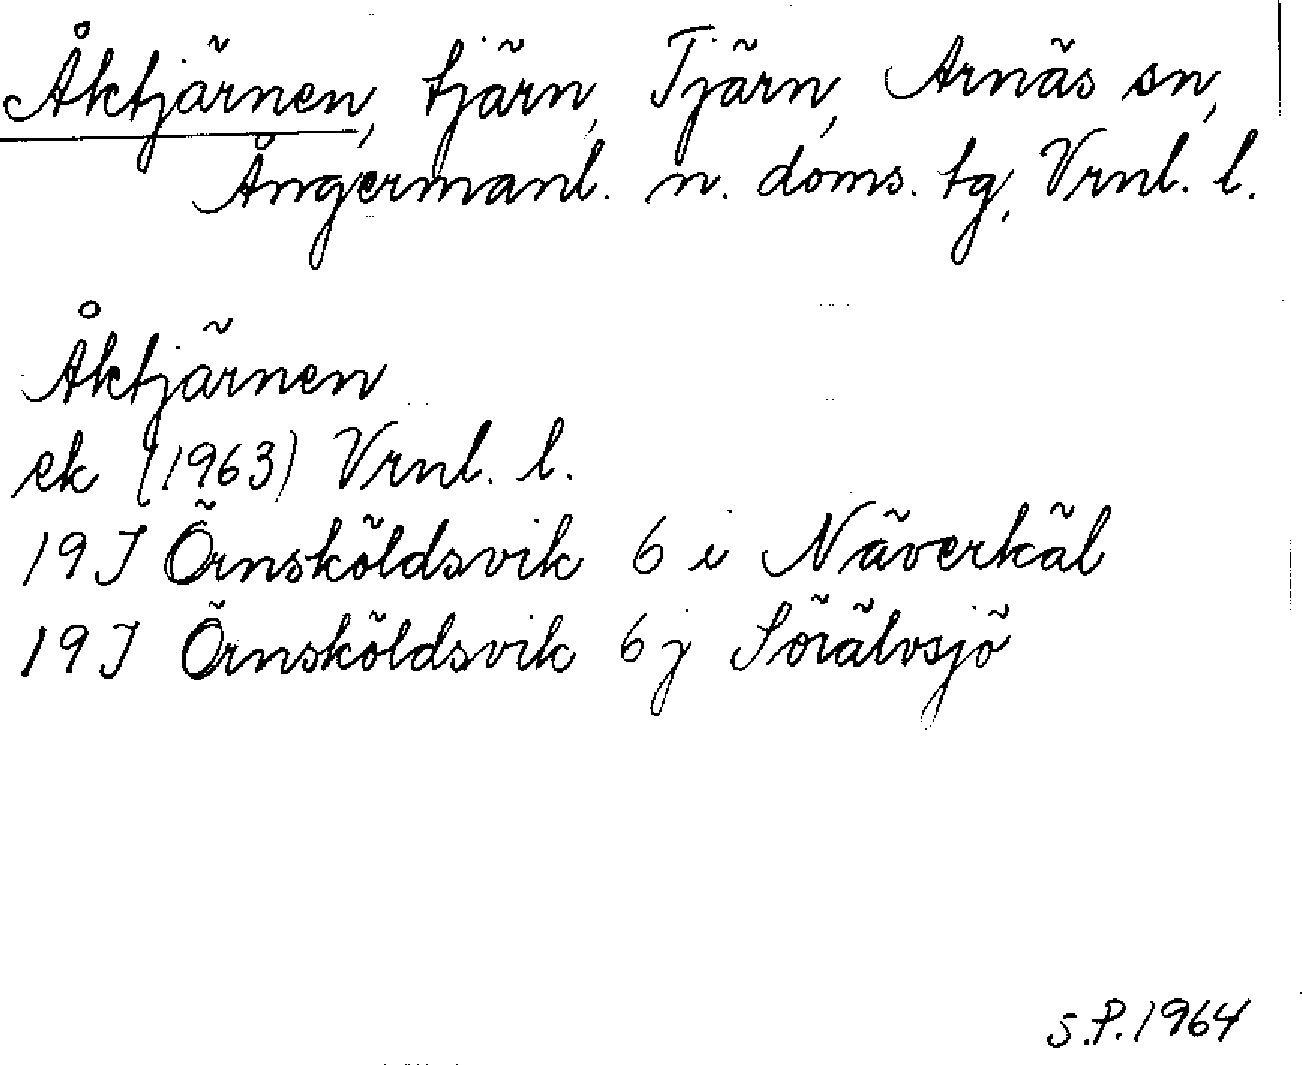 Åktjärnen, tjärn, Tjärn, Arnäs sn,
Ångermanl. n. doms. tg, Vrnl. l.
Åktjärnen
ek (1963) Vrnl. l.
19J Örnsköldsvik 6 i Näverkäl
19J Örnsköldsvik 6 j Sörälvsjö
S.P. 1964